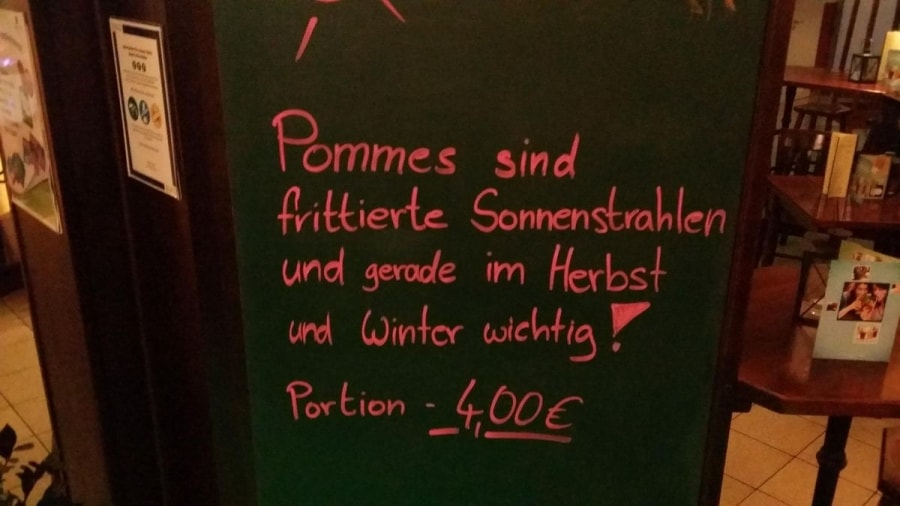 Pommes sind
frittierte Sonnenstrahlen
und gerade im Herbst
und Winter wichtig!
Portion - 4,00€